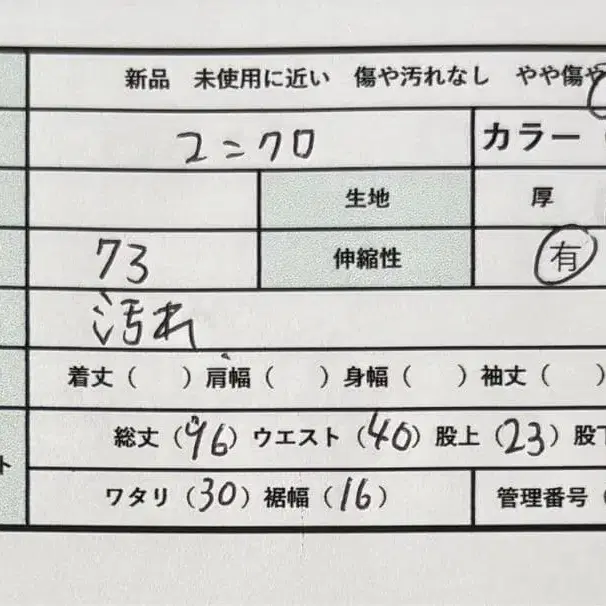 新品 未使用に近い 傷や汚れなし やや傷や
ユニクロ カラー
生地 厚
73 伸縮性 有
汚れ
着丈（ ）肩幅（ ）身幅（ ）袖丈（ ）
総丈（96）ウエスト（40）股上（23）股下
ト ワタリ（30）裾幅（16） 管理番号（